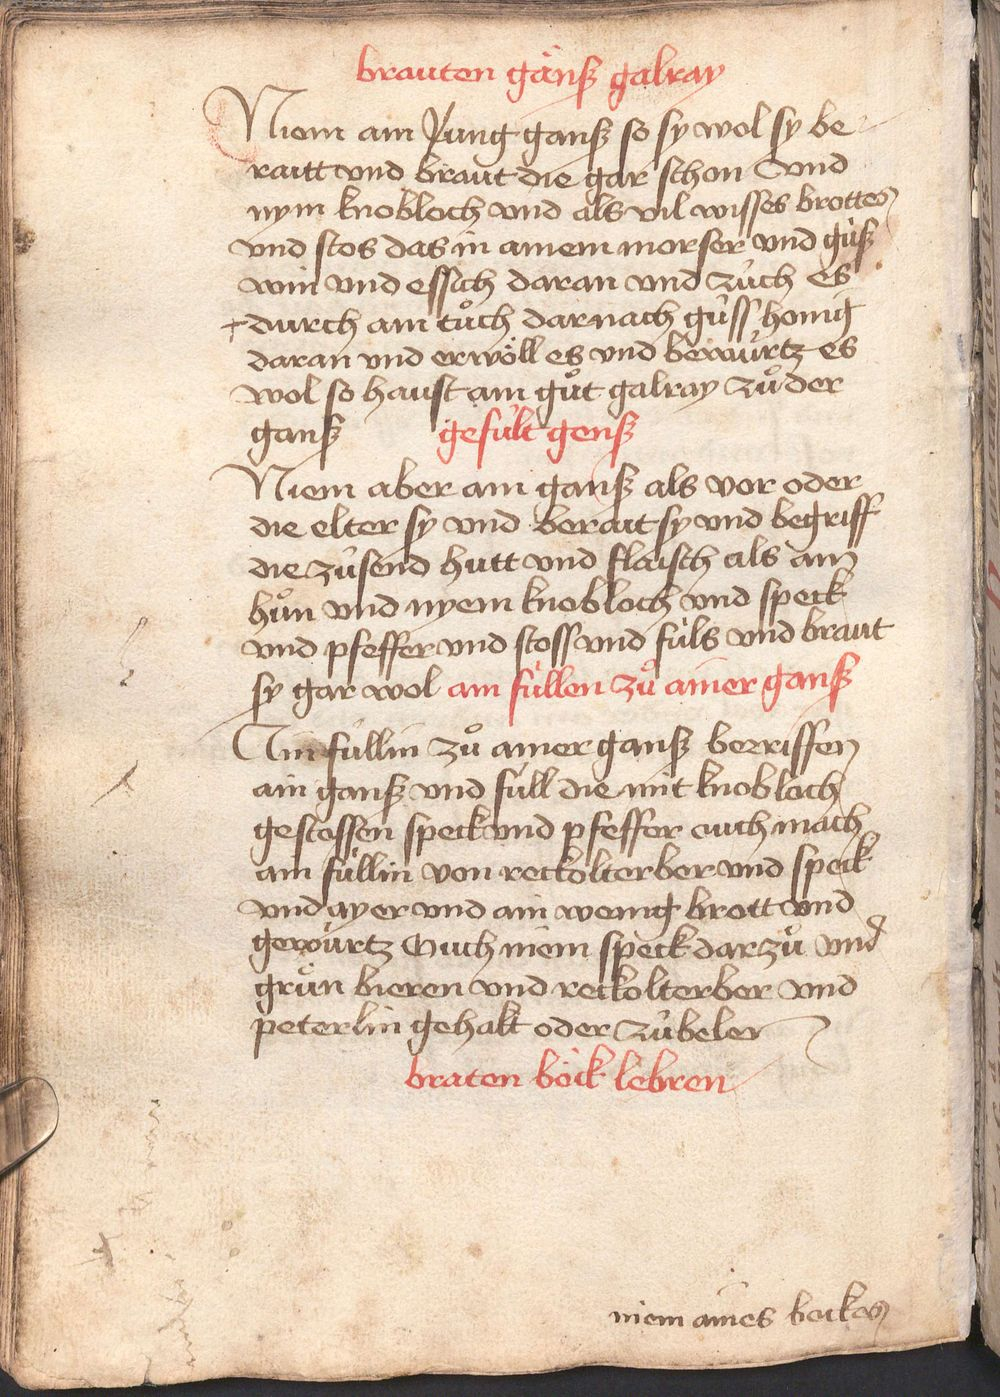 brauten gänß galray
Niem ain Jung ganß so sy wol sy be
raitt vnd braut die gar schon Vnd
nym knobloch vnd als vil wisses brottes
vnd stos das in ainem morser vnd güß
win vnd essich daran vnd züch es
durch ain tůch darnach güss honig
daran vnd erwöll es vnd bewürtz es
wol so haust ain gůt galray zů der
ganß gefült genß
Niem aber ain ganß als vor oder
die elter sy vnd berait sy vnd begriff
die züsend hutt vnd flaisch als ain
hůn vnd nyem knobloch vnd speck
vnd pfeffer vnd stoss vnd füls vnd braut
sy gar wol ain füllen zů ainer ganß
Ain füllin zů ainer ganß berriffen
ain ganß vnd füll die mit knobloch
gestossen speck vnd pfeffer ouch mach
ain füllin von reckolterber vnd speck
vnd ayer vnd ain wenig brott vnd
gewürtz Ouch niem speck darzů vnd
grün bieren vnd reckolterber vnd
peterlin gehakt oder zübelen
braten böck lebren
niem aines bockes